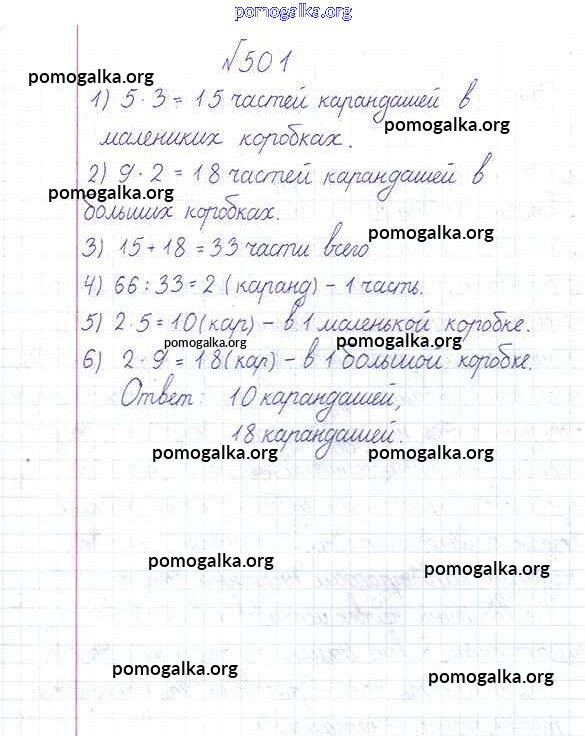 pomogalka.org
№501
pomogalka.org
1) 5 · 3 = 15 частей карандашей в
pomogalka.org
малениких коробках.
2) 9 · 2 = 18 частей карандашей в
pomogalka.org
больших коробках.
pomogalka.org
3) 15 + 18 = 33 части всего
4) 66 : 33 = 2 (каранд) – 1 часть.
5) 2 · 5 = 10 (кар) – в 1 маленькой коробке.
pomogalka.org pomogalka.org
6) 2 · 9 = 18 (кар) – в 1 большой коробке.
Ответ: 10 карандашей,
18 карандашей.
pomogalka.org pomogalka.org
pomogalka.org pomogalka.org
pomogalka.org pomogalka.org